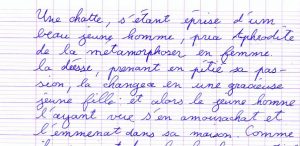 Une chatte, s'étant éprise d'un
beau jeune homme, pria Aphrodite
de la métamorphoser en femme.
la déesse, prenant en pitié sa pas-
sion, la changea en une gracieuse
jeune fille : et alors le jeune homme
l'ayant vue s'en amourachat et
l'emmenat dans sa maison. Comme